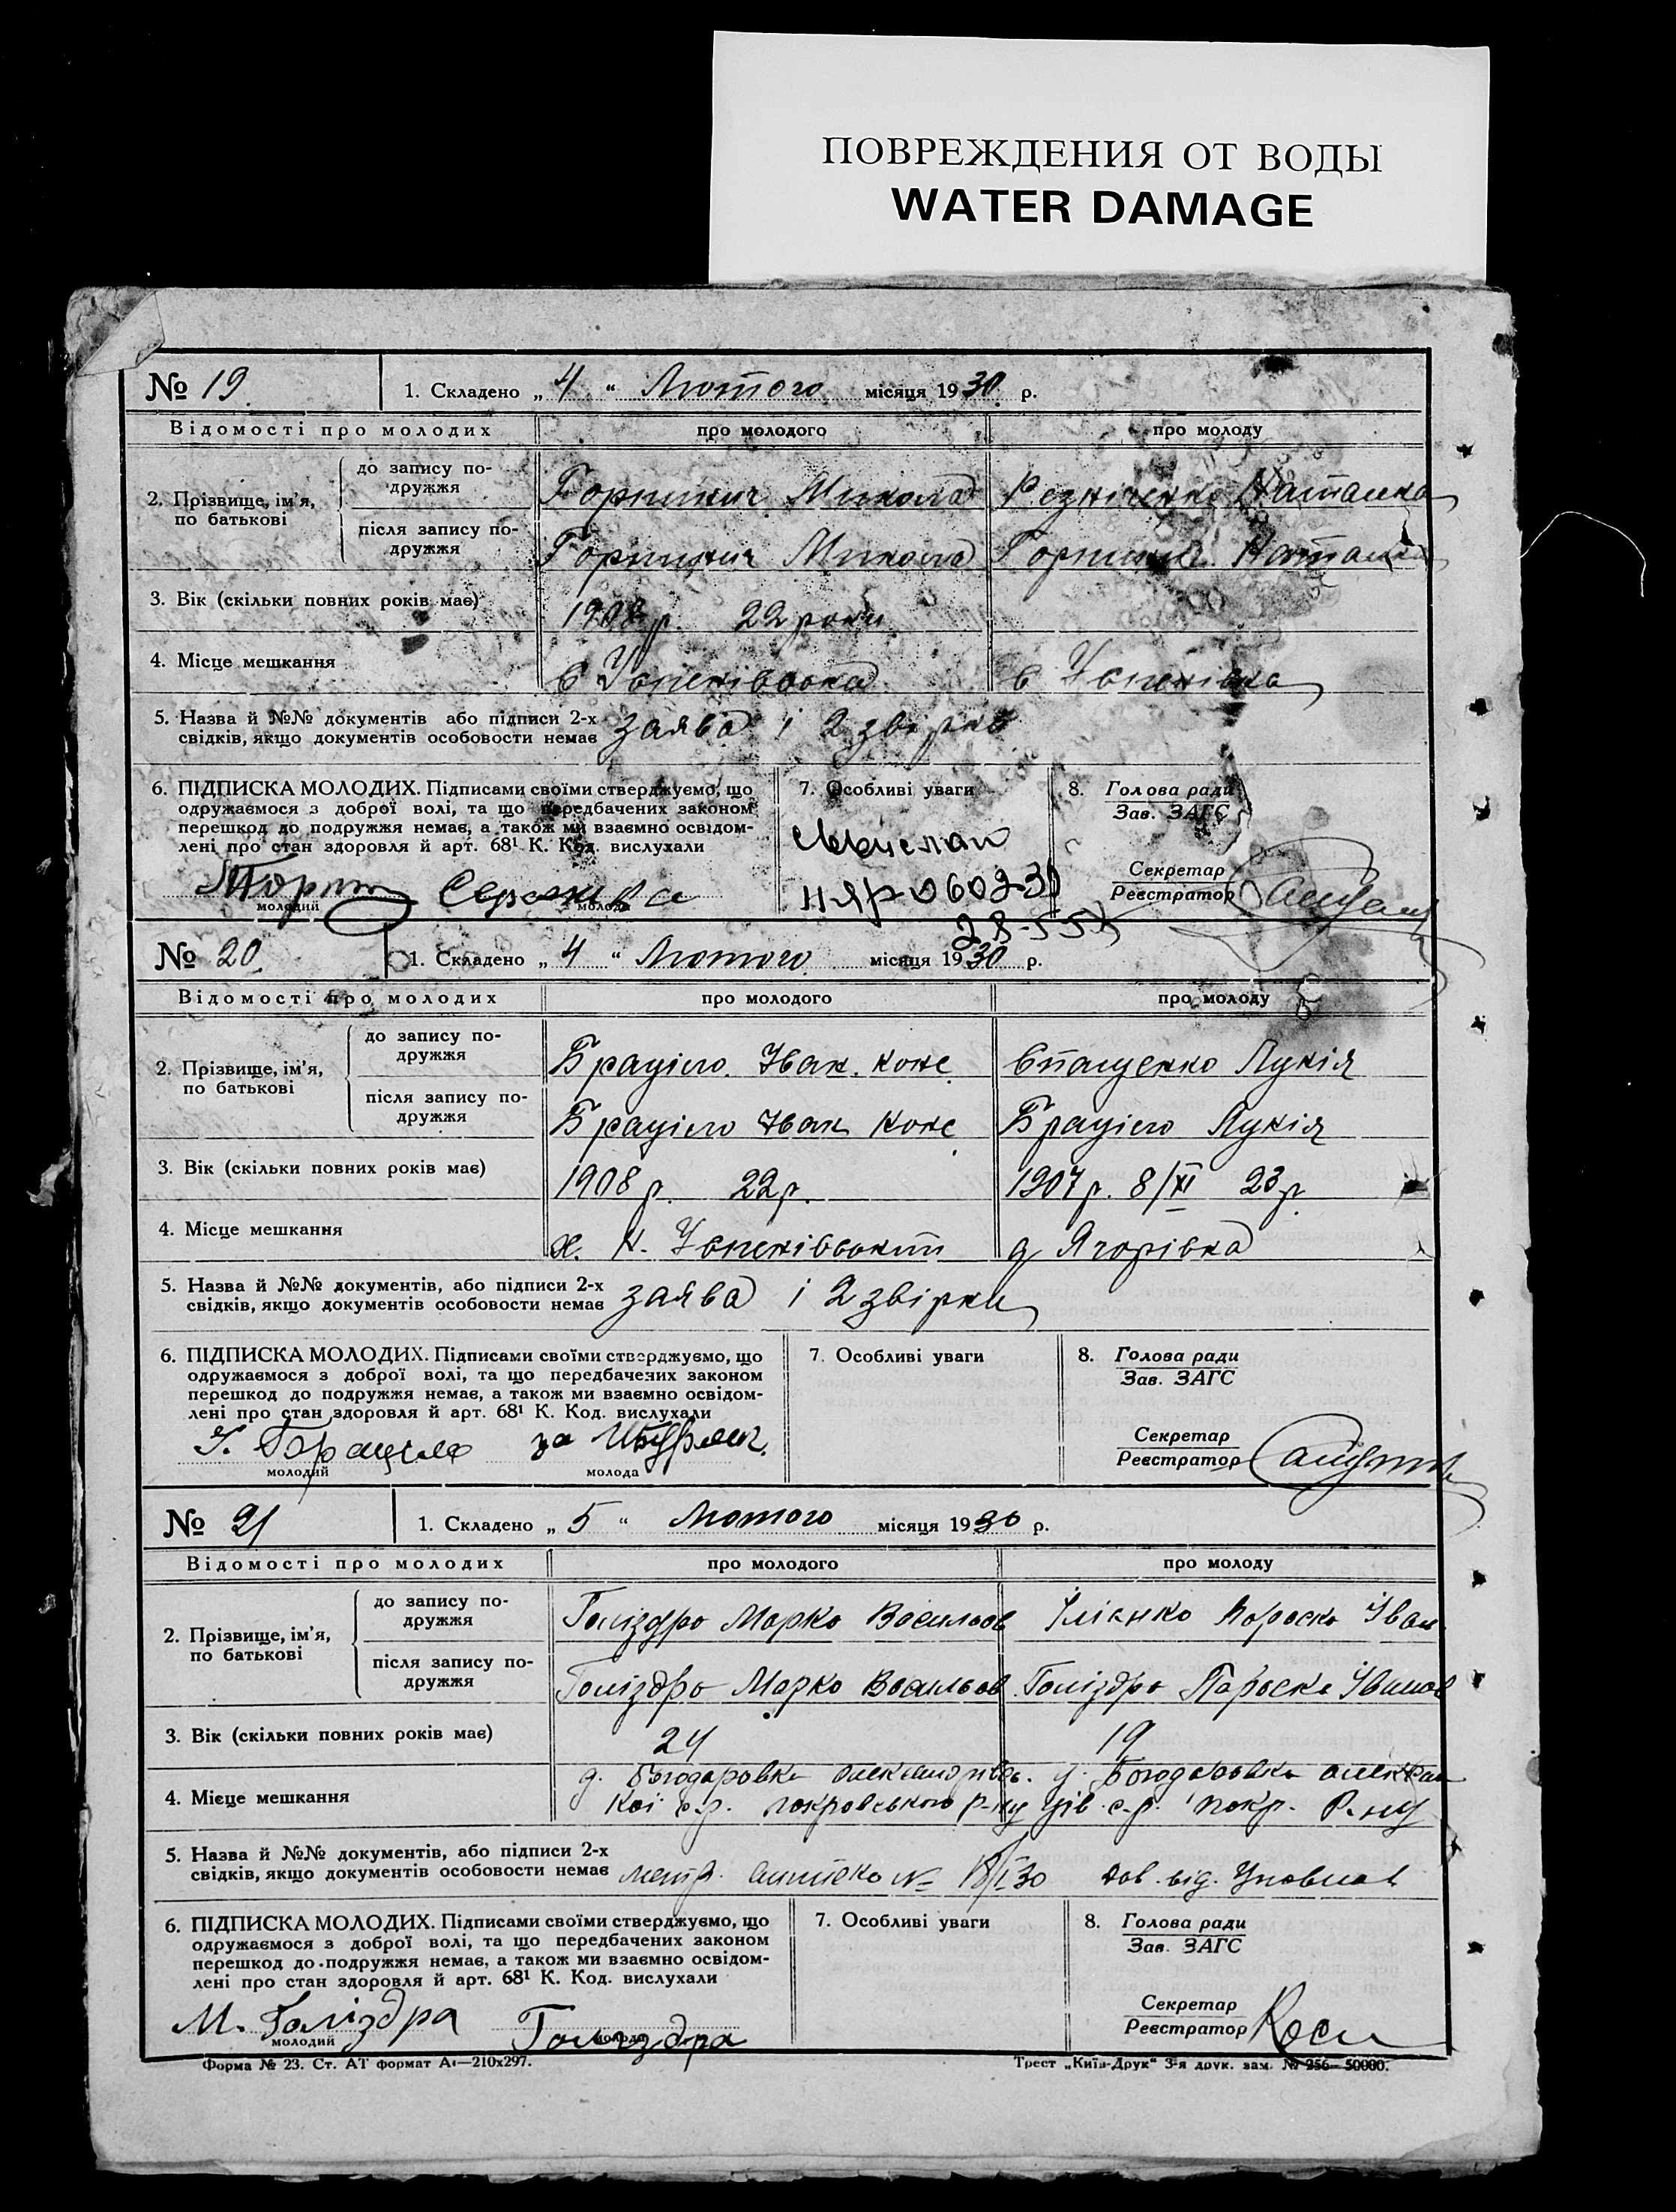 ПОВРЕЖДЕНИЯ ОТ ВОДЫ
WATER DAMAGE
№ 19. 1. Складено „ 4 “ Лютого місяця 1930 р.
Відомості про молодих про молодого про молоду
2. Прізвище, ім'я, по батькові
до запису по-
дружжя
Микола Наталка
після запису по-
дружжя
Микола
3. Вік (скільки повних років має) 1908 р. 22 роки
4. Місце мешкання
5. Назва й №№ документів або підписи 2-х
свідків, якщо документів особовости немає заява і 2 звірки
6. ПІДПИСКА МОЛОДИХ. Підписами своїми стверджуємо, що
одружаємося з доброї волі, та що передбачених законом
перешкод до подружжя немає, а також ми взаємно освідом-
лені про стан здоровля й арт. 68¹ К. Код. вислухали
молодий молода
7. Особливі уваги
8. Голова ради
Зав. ЗАГС
Секретар
Реєстратор
№ 20. 1. Складено „ 4 “ Лютого місяця 1930 р.
Відомості про молодих про молодого про молоду
2. Прізвище, ім'я,
по батькові
до запису по-
дружжя
Браціло Іван Лукія
після запису по-
дружжя
Браціло Іван Браціло Лукія
3. Вік (скільки повних років має) 1908 р. 22 р. 1907 р. 8/XI 23 р.
4. Місце мешкання х. д Ягорівка
5. Назва й №№ документів, або підписи 2-х
свідків, якщо документів особовости немає заява і 2 звірки
6. ПІДПИСКА МОЛОДИХ. Підписами своїми стверджуємо, що
одружаємося з доброї волі, та що передбачених законом
перешкод до подружжя немає, а також ми взаємно освідом-
лені про стан здоровля й арт. 68¹ К. Код. вислухали
молодий за молода
7. Особливі уваги
8. Голова ради
Зав. ЗАГС
Секретар
Реєстратор
№ 21 1. Складено „ 5 “ Лютого місяця 1930 р.
Відомості про молодих про молодого про молоду
2. Прізвище, ім'я,
по батькові
до запису по-
дружжя
Голіздро Марко Васильов
після запису по-
дружжя
Голіздро Марко Васильов Голіздро Параска Іванов
3. Вік (скільки повних років має) 24 19
4. Місце мешкання
д. Богодаровка
кої с.р. Покровського р-ну с.р. Покр. Р-ну
5. Назва й №№ документів, або підписи 2-х
свідків, якщо документів особовости немає метр. № 30 Дов. від.
6. ПІДПИСКА МОЛОДИХ. Підписами своїми стверджуємо, що
одружаємося з доброї волі, та що передбачених законом
перешкод до подружжя немає, а також ми взаємно освідом-
лені про стан здоровля й арт. 68¹ К. Код. вислухали
М. Голіздра Голіздра
молодий молода
7. Особливі уваги
8. Голова ради
Зав. ЗАГС
Секретар
Реєстратор
Форма № 23. Ст. АТ формат А4—210х297. Трест „Київ-Друк“ 3-я друк. зам. № 256—50000.